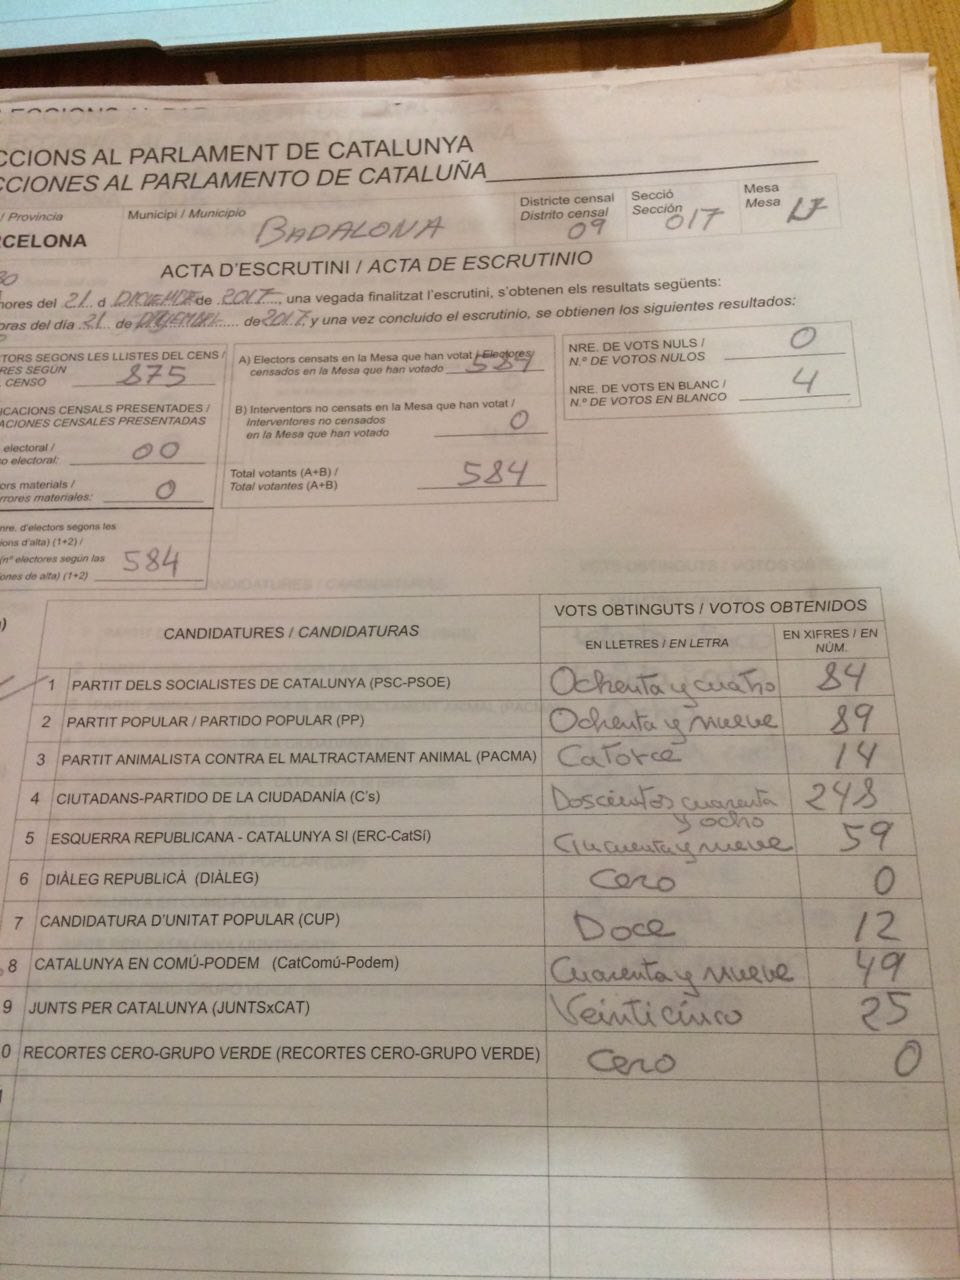 CCIONS AL PARLAMENT DE CATALUNYA
CCIONES AL PARLAMENTO DE CATALUÑA
/ Provincia
RCELONA
Municipi / Municipio
BADALONA
Districte censal
Distrito censal
09
Secció
Sección
017
Mesa
Mesa
ACTA D'ESCRUTINI / ACTA DE ESCRUTINIO
hores del 21 d DICIEMBRE de 2017, una vegada finalitzat l'escrutini, s'obtenen els resultats següents:
oras del día 21 de DICIEMBRE de 2017, y una vez concluido el escrutinio, se obtienen los siguientes resultados:
CTORS SEGONS LES LLISTES DEL CENS /
ORES SEGÚN
CENSO 875
ICACIONS CENSALS PRESENTADES /
ACIONES CENSALES PRESENTADAS
electoral /
o electoral: 00
ors materials /
rrores materiales: 0
nre. d'electors segons les
ions d'alta) (1+2) /
(nº electores según las
ones de alta) (1+2) 584
A) Electors censats en la Mesa que han votat / Electores
censados en la Mesa que han votado 584
B) Interventors no censats en la Mesa que han votat /
Interventores no censados
en la Mesa que han votado 0
Total votants (A+B) /
Total votantes (A+B) 584
NRE. DE VOTS NULS /
N.º DE VOTOS NULOS 0
NRE. DE VOTS EN BLANC /
N.º DE VOTOS EN BLANCO 4
CANDIDATURES / CANDIDATURAS
VOTS OBTINGUTS / VOTOS OBTENIDOS
EN LLETRES / EN LETRA
EN XIFRES / EN
NÚM.
1 PARTIT DELS SOCIALISTES DE CATALUNYA (PSC-PSOE) Ochenta y cuatro 84
2 PARTIT POPULAR / PARTIDO POPULAR (PP) Ochenta y nueve 89
3 PARTIT ANIMALISTA CONTRA EL MALTRACTAMENT ANIMAL (PACMA) Catorce 14
4 CIUTADANS-PARTIDO DE LA CIUDADANÍA (C's) Doscientos cuarenta y ocho 248
5 ESQUERRA REPUBLICANA - CATALUNYA SI (ERC-CatSí) Cincuenta y nueve 59
6 DIÀLEG REPUBLICÀ (DIÀLEG) Cero 0
7 CANDIDATURA D'UNITAT POPULAR (CUP) Doce 12
8 CATALUNYA EN COMÚ-PODEM (CatComú-Podem) Cuarenta y nueve 49
9 JUNTS PER CATALUNYA (JUNTSxCAT) Veinticinco 25
0 RECORTES CERO-GRUPO VERDE (RECORTES CERO-GRUPO VERDE) Cero 0